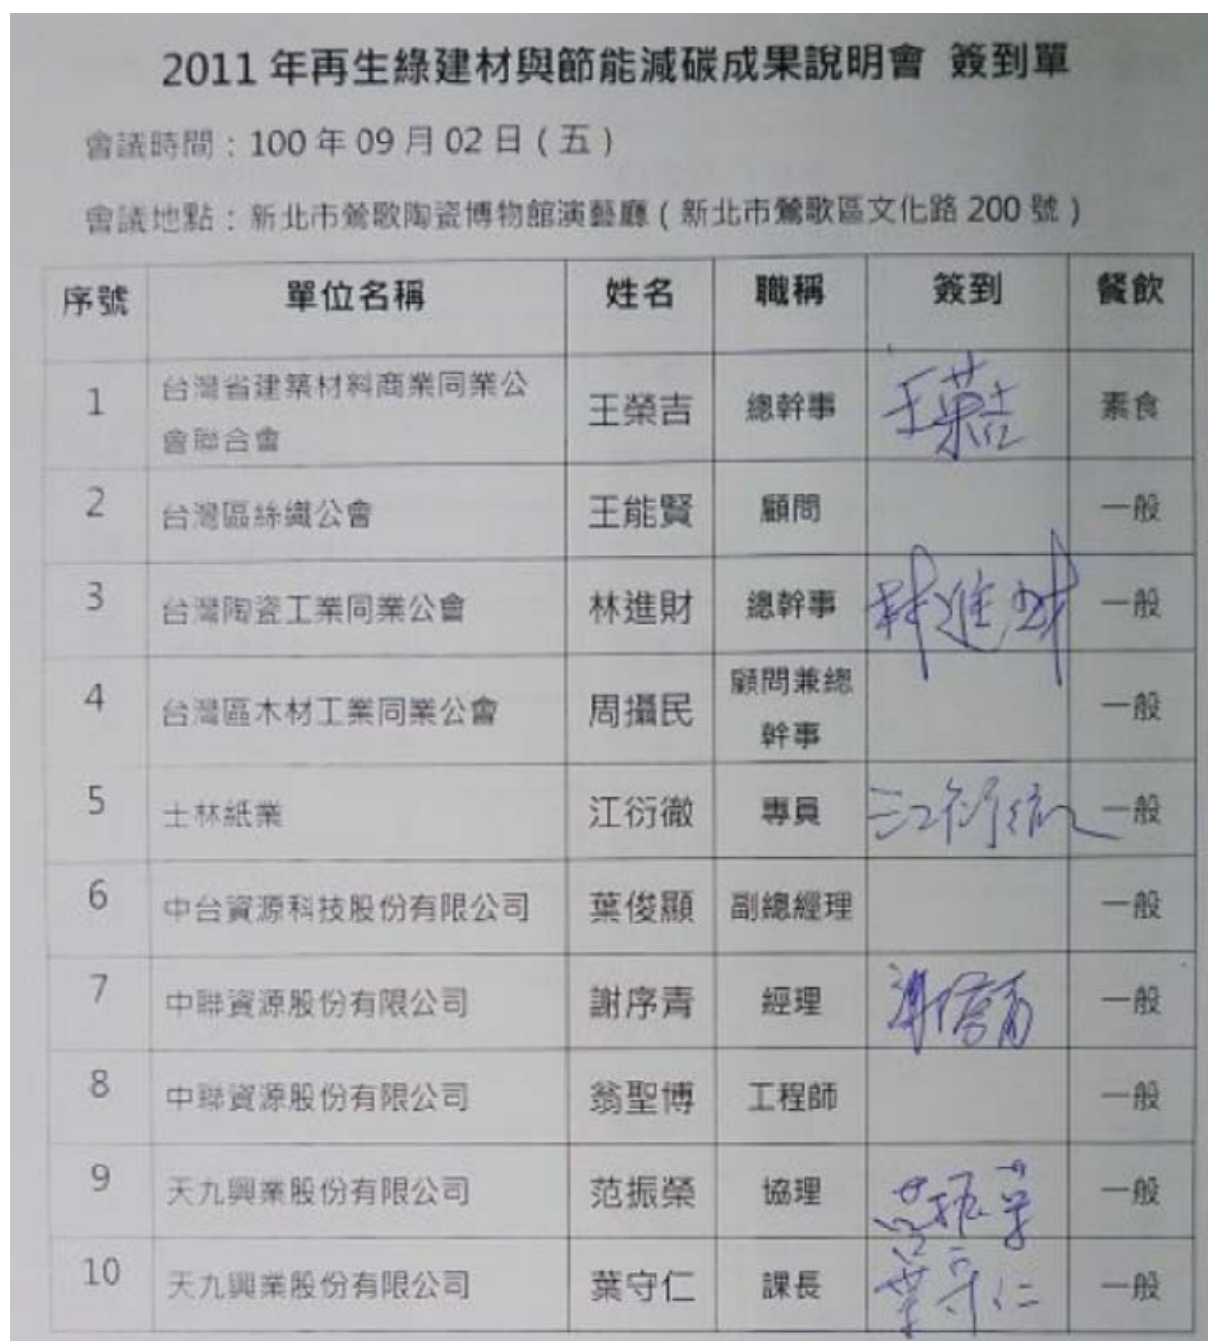 2011 年再生綠建材與節能減碳成果說明會 簽到單
會議時間：100 年 09 月 02 日（五）
會議地點：新北市鶯歌陶瓷博物館演藝廳（新北市鶯歌區文化路 200 號）
序號 單位名稱 姓名 職稱 簽到 餐飲
1 台灣省建築材料商業同業公 王榮吉 總幹事 王榮吉 素食
會聯合會
2 台灣區絲織公會 王能賢 顧問 一般
3 台灣陶瓷工業同業公會 林進財 總幹事 林進財 一般
4 台灣區木材工業同業公會 周攝民 顧問兼總 一般
幹事
5 士林紙業 江衍徹 專員 江衍徹 一般
6 中台資源科技股份有限公司 葉俊顯 副總經理 一般
7 中聯資源股份有限公司 謝序青 經理 一般
8 中聯資源股份有限公司 翁聖博 工程師 一般
9 天九興業股份有限公司 范振榮 協理 范振荣 一般
10 天九興業股份有限公司 葉守仁 課長 葉守仁 一般